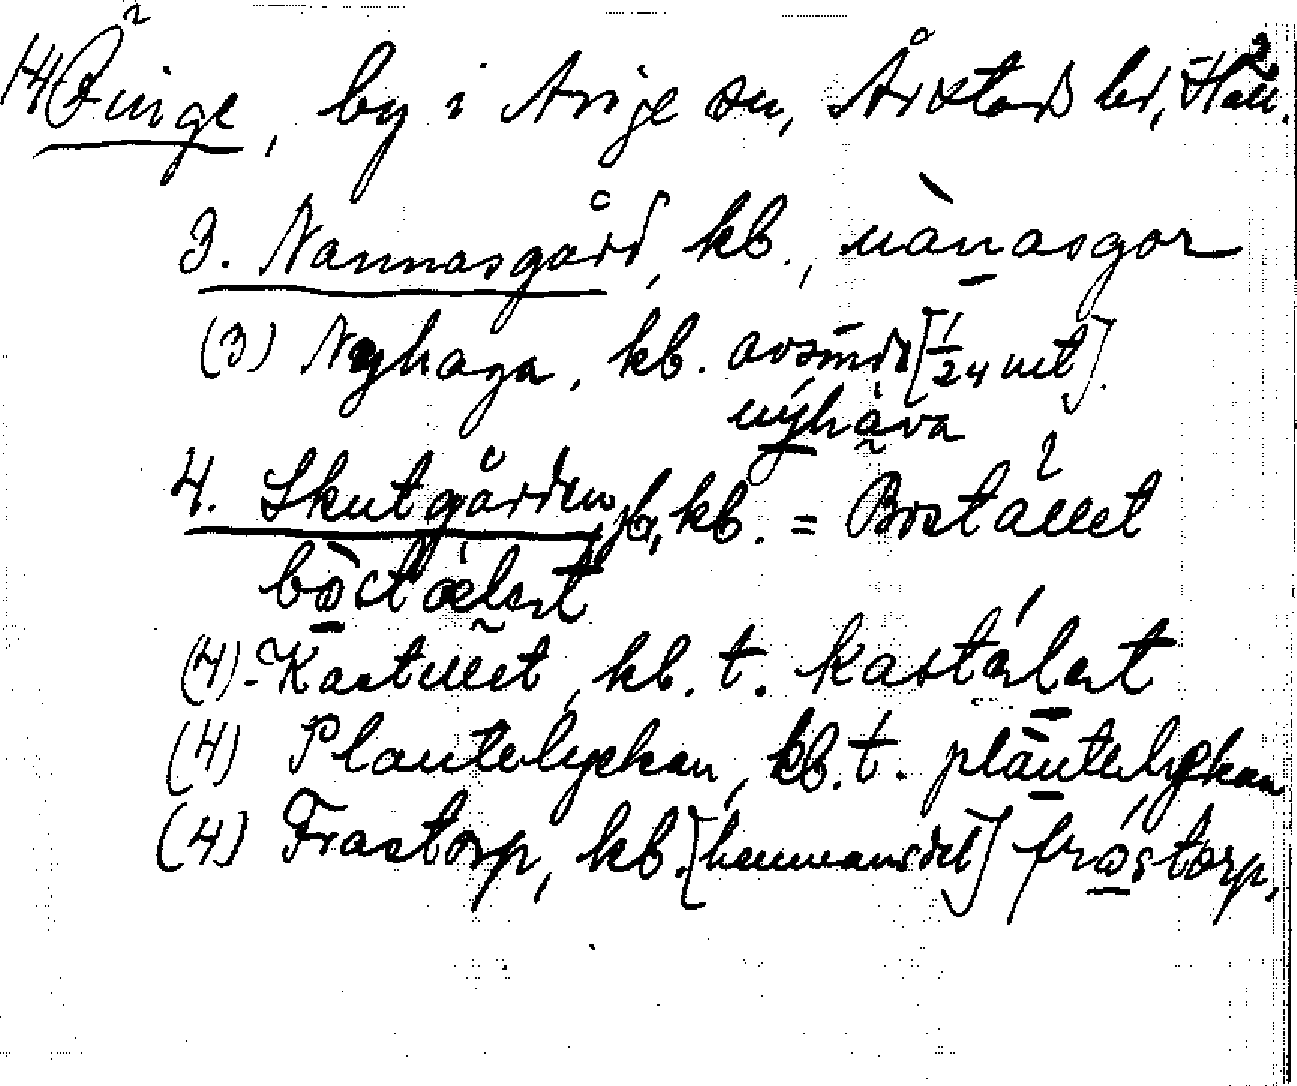 14 Ränge, by i Årige sn, Årstads hd, Hall. 2
3. Nannasgård, kb., nànasgor
(3) Nyhaga, kb. avsöndr [1/24 mt].
nýhàva
4. Skutgården, fg, kb. = Bostället
bòstælət
(4). Kastellet, kb. t. kastélət
(4) Plantelyckan, kb. t. plàntelykan
(4) Frastorp, kb. [hemmansdel] frástorp.